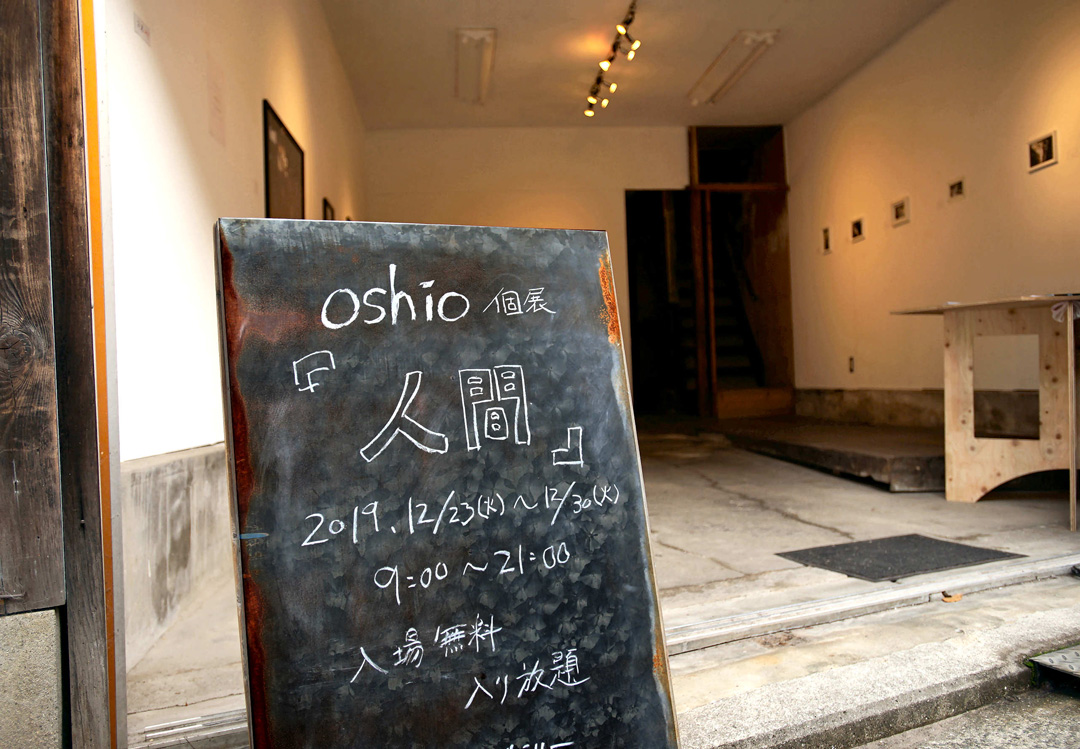 oshio 個展
『人間』
2019.12/23(火)～12/30(火)
9:00～21:00
入場無料
入り放題